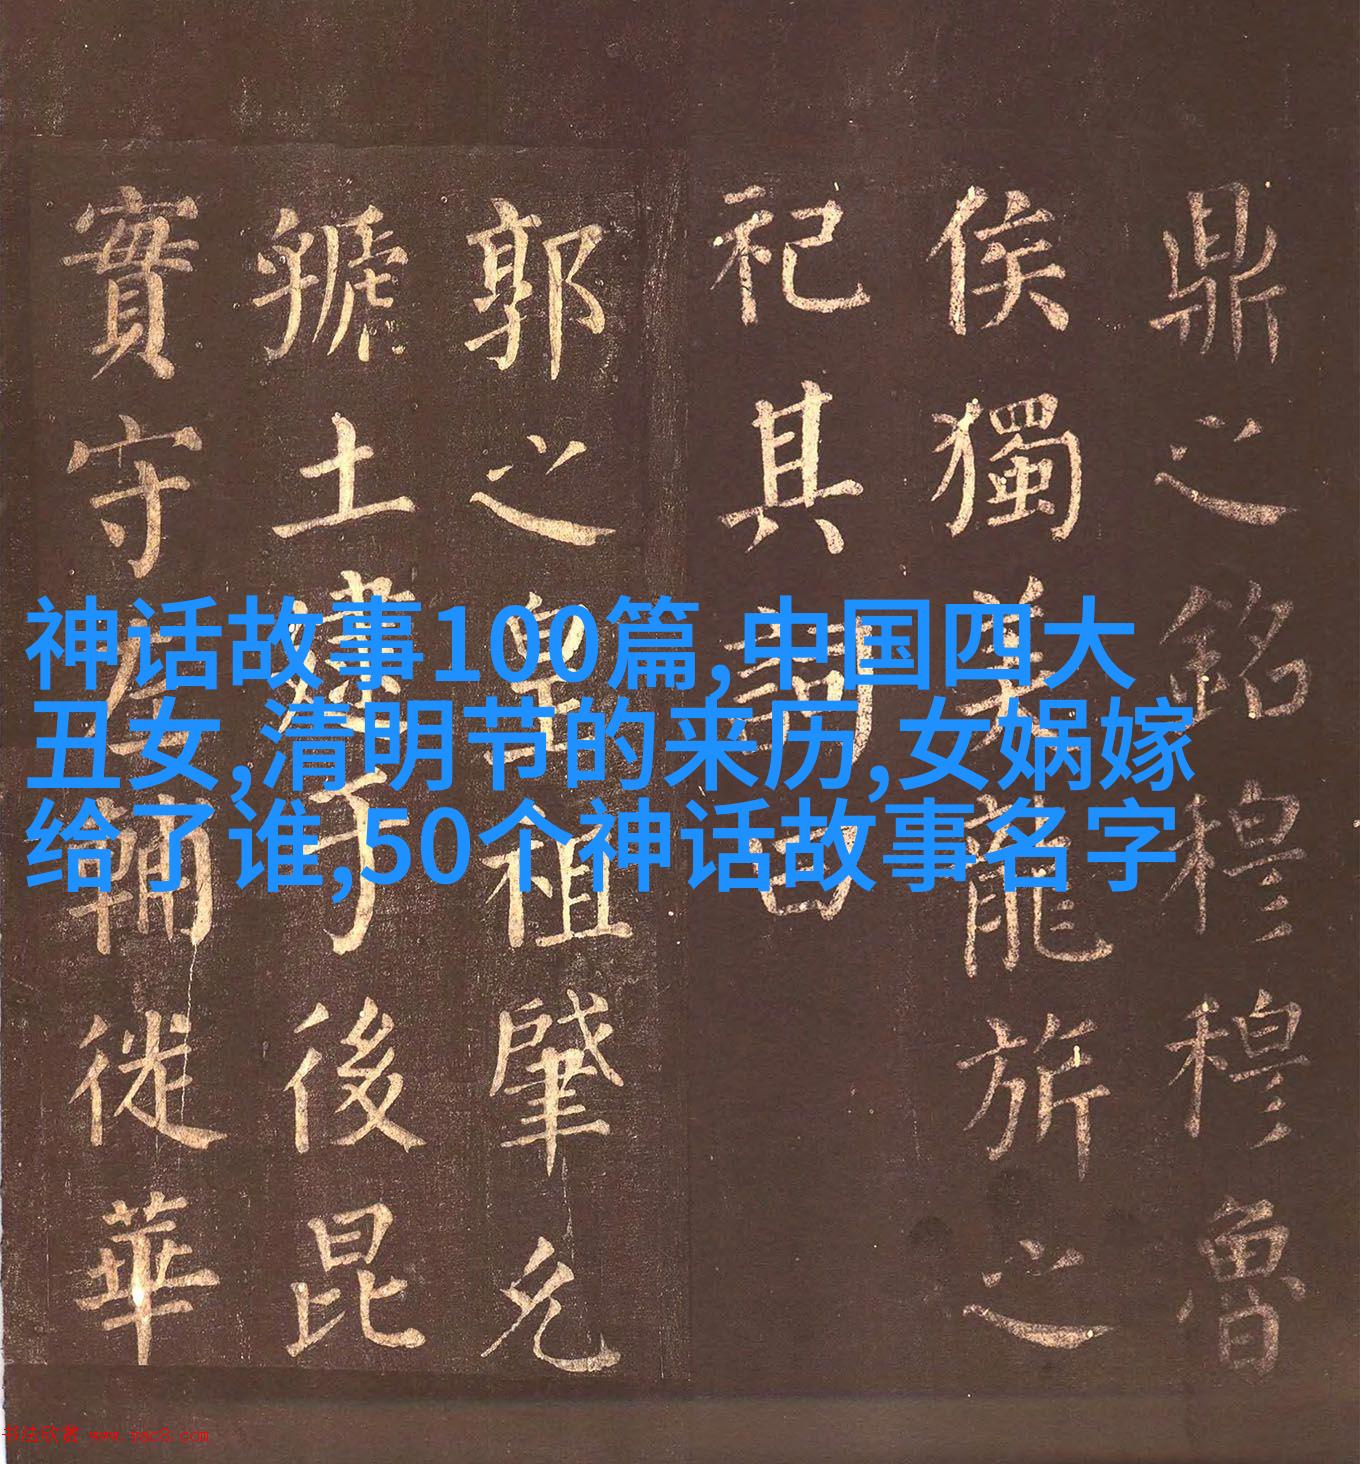 鼎之銘穆穆魯
侯獨美龍旂之
祀其詞曰
郭之皇祖肇允
虢土建于後昆
實守左輔徙華
神话故事100篇,中国四大
丑女,清明节的来历,女娲嫁
给了谁,50个神话故事名字
书法欣赏